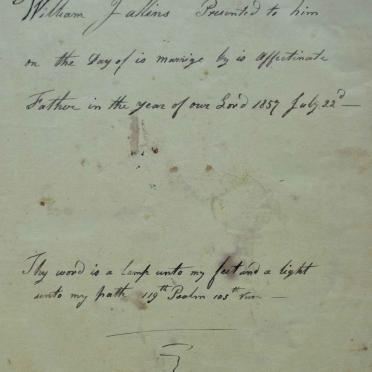 William Jallins Presented to him
on the Day of is marrige by is affectinate
Father in the year of our Lord 1857 July 22d —
Thy word is a lamp unto my feet and a light
unto my path 119th Psalm 105th Ver —